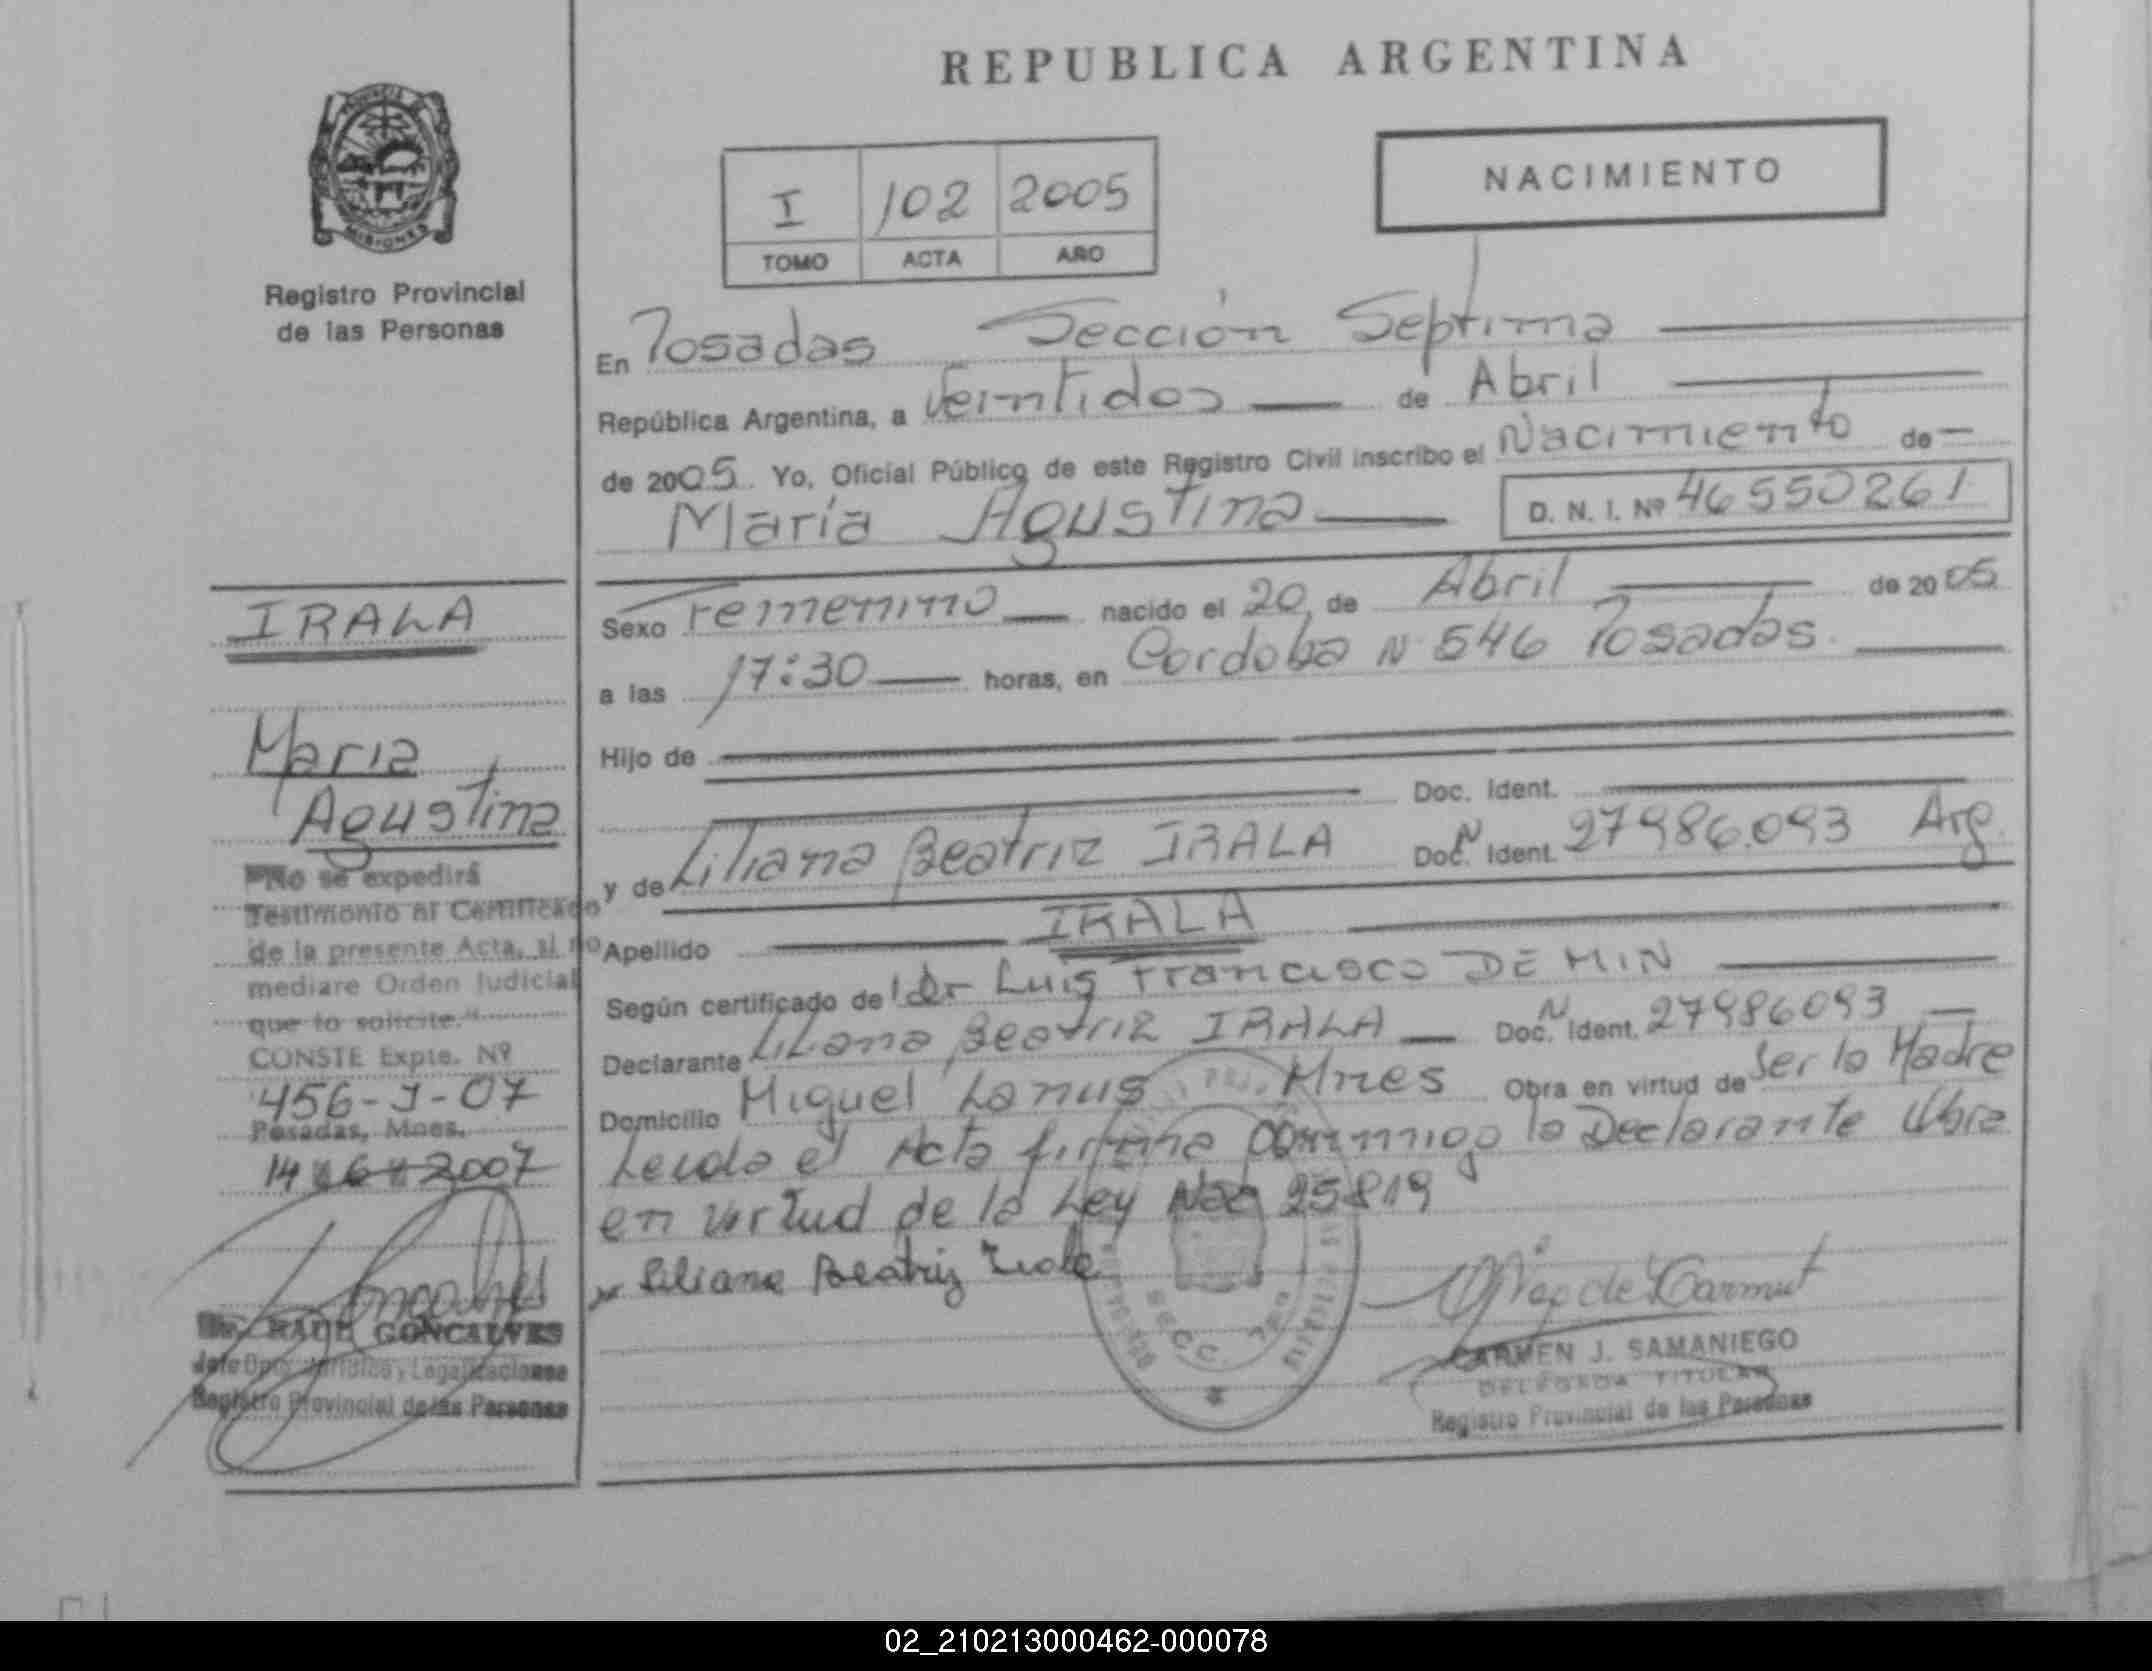 REPUBLICA ARGENTINA
MISIONES
Registro Provincial
de las Personas
I 102 2005
TOMO ACTA AÑO
NACIMIENTO
En Posadas Sección Septima
República Argentina, a Veintidos de Abril
de 2005. Yo, Oficial Público de este Registro Civil inscribo el Nacimiento de
María Agustina D. N. I. Nº 46550261
Sexo Femenino nacido el 20 de Abril de 2005
a las 17:30 horas, en Cordoba N 546 Posadas.
Hijo de
Doc. Ident.
y de Liliana Beatriz IRALA Doc. N Ident. 27986.093 Arg.
Apellido IRALA
Según certificado del dr Luis Francisco DEMIN
Declarante Liliana Beatriz IRALA Doc. N Ident. 27986093
Domicilio Miguel Lanus Mnes Obra en virtud de Ser la Madre
Leida el Acta firma conmigo la Declarante
en virtud de la Ley 25819
Liliana Beatriz Irala
SECC. 7ma
CARMEN J. SAMANIEGO
DELEGADA TITULAR
Registro Provincial de las Personas
IRALA
Maria
Agustina
"No se expedirá
Testimonio ni Certificado
de la presente Acta, si no
mediare Orden Judicial
que lo solicite."
CONSTE Expte. Nº
456-J-07
Posadas, Mnes.
14 6 2007
RAUL GONCALVES
Jefe Dpto. Jurídico y Legalizaciones
Registro Provincial de las Personas
02_210213000462-000078